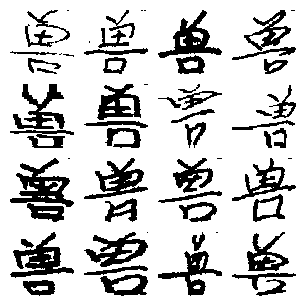 兽兽兽兽
兽兽兽兽
兽兽兽兽
兽兽兽兽